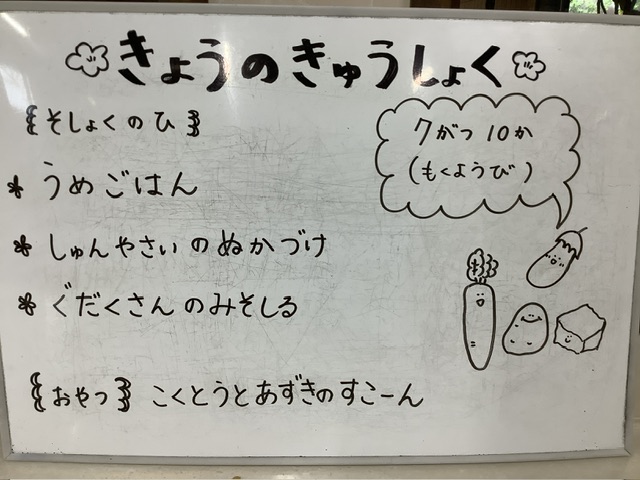 きょうのきゅうしょく
{そしょくのひ}
7がつ10か
(もくようび)
* うめごはん
* しゅんやさいのぬかづけ
* ぐだくさんのみそしる
{おやつ} こくとうとあずきのすこーん